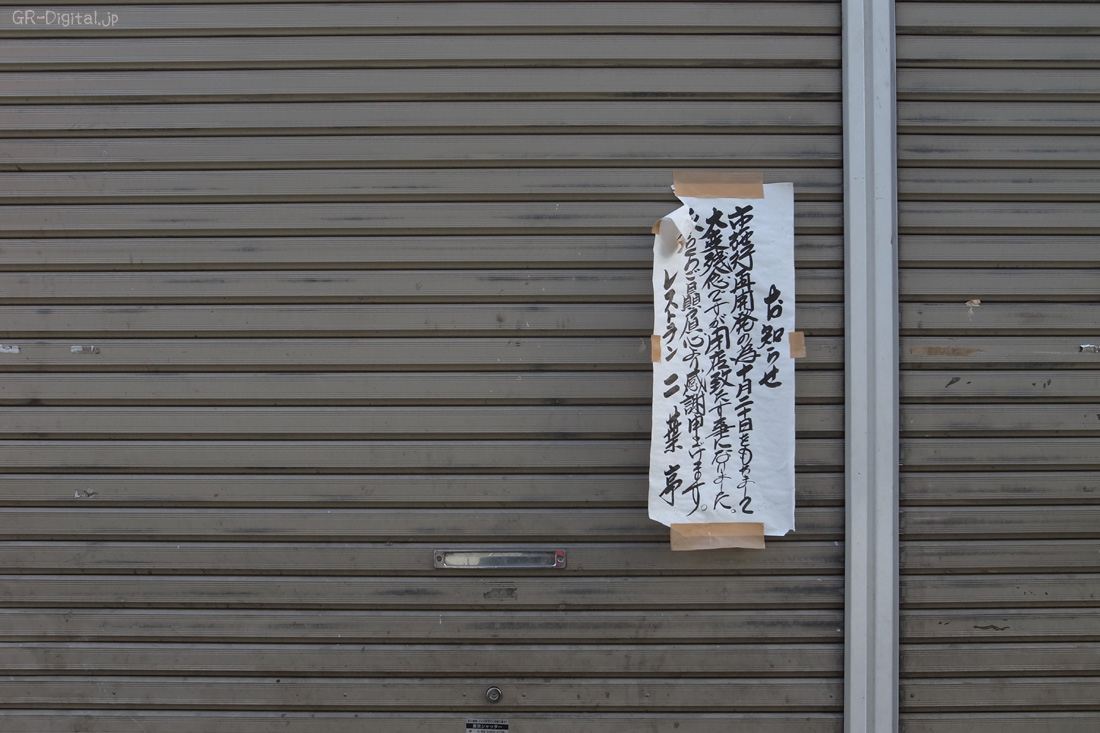 GR-Digital.jp
お知らせ
市施行再開発の為十月二十日をもちまして
大変残念ですが閉店致たす事になりました。
ご贔屓心より感謝申上げます。
レストラン 二葉亭